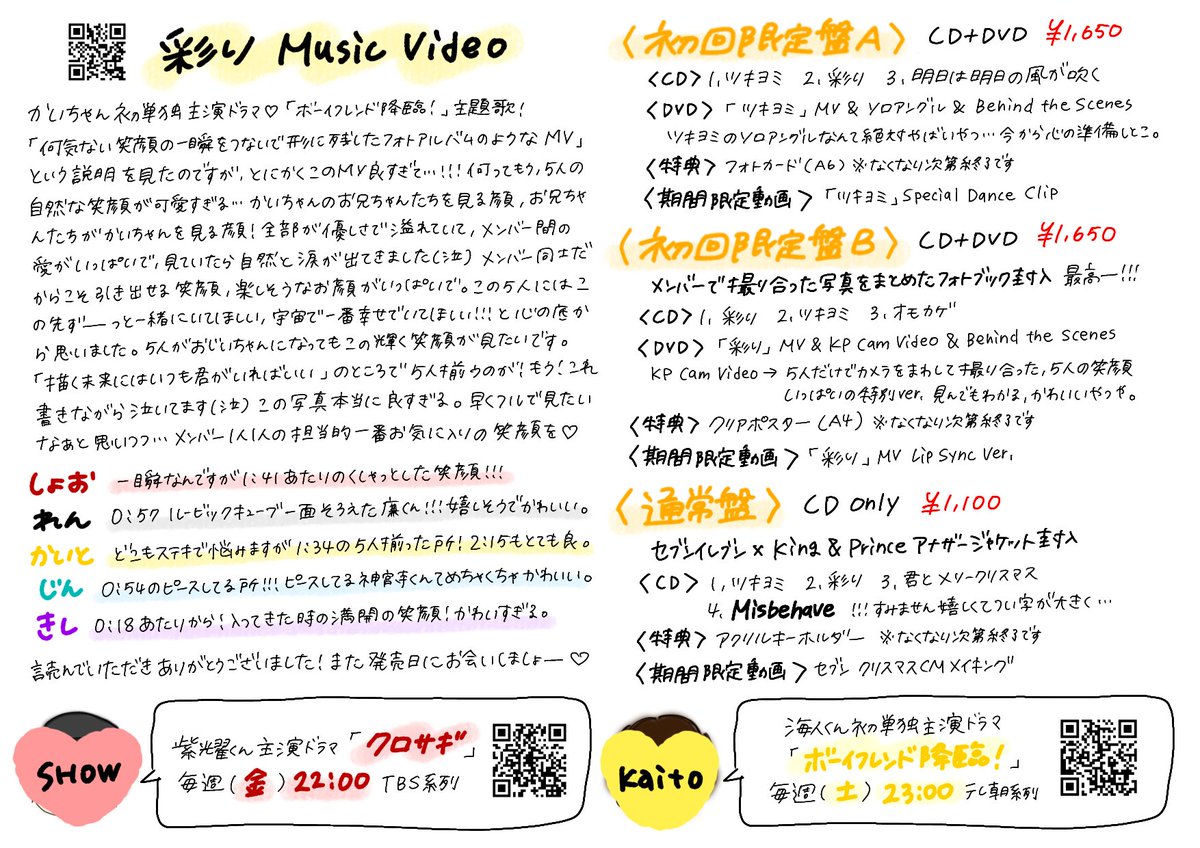 彩り Music Video
かいちゃん初の単独主演ドラマ♡「ボーイフレンド降臨！」主題歌！
「何気ない笑顔の一瞬をつないで形に残したフォトアルバムのようなMV」
という説明を見たのですが、とにかくこのMV良すぎて…!!!何ってもう、5人の
自然な笑顔が可愛すぎる… かいちゃんのお兄ちゃんたちを見る顔、お兄ちゃ
んたちがかいちゃんを見る顔！全部が優しさで溢れていて、メンバー間の
愛がいっぱいで、見ていたら自然と涙が出てきました(泣) メンバー同士だ
からこそ引き出せる笑顔，楽しそうなお顔がいっぱいで。この5人にはこ
の先ずーーっと一緒にいてほしい，宇宙で一番幸せでいてほしい!!!と心の底か
ら思いました。5人がおじいちゃんになってもこの輝く笑顔が見たいです。
「描く未来にはいつも君がいればいい」のところで5人揃うのが！もう！これ
書きながら泣いてます(泣) この写真本当に良すぎる。早くフルで見たい
なぁと思いつつ… メンバー1人1人の担当的一番お気に入りの笑顔を♡
しょお 一瞬なんですが1:41あたりのくしゃっとした笑顔!!!
れん 0:57 ルービックキューブ一面そろえた廉くん!!!嬉しそうでかわいい。
かいと どこもステキで悩みますが1:34の5人揃った所！2:15もとても良。
じん 0:54のピースしてる所!!!ピースしてる神宮寺くんてめちゃくちゃかわいい。
きし 0:18あたりから！入ってきた時の満開の笑顔！かわいすぎる。
読んでいただきありがとうございました！また発売日にお会いしましょー♡
SHOW
紫耀くん主演ドラマ「クロサギ」
毎週(金)22:00 TBS系列
〈初回限定盤A〉 CD+DVD ¥1,650
〈CD〉1,ツキヨミ 2,彩り 3,明日は明日の風が吹く
〈DVD〉「ツキヨミ」MV & ソロアングル & Behind the Scenes
ツキヨミのソロアングルなんて絶対やばいやつ…今から心の準備しとこ。
〈特典〉フォトカード(A6) ※なくなり次第終了です
〈期間限定動画〉「ツキヨミ」Special Dance Clip
〈初回限定盤B〉 CD+DVD ¥1,650
メンバーで撮り合った写真をまとめたフォトブック封入 最高ー!!!
〈CD〉1,彩り 2,ツキヨミ 3,オモカゲ
〈DVD〉「彩り」MV & KP Cam Video & Behind the Scenes
KP Cam Video→5人だけでカメラをまわして撮り合った，5人の笑顔
いっぱいの特別ver. 見んでもわかる，かわいいやつや。
〈特典〉クリアポスター(A4) ※なくなり次第終了です
〈期間限定動画〉「彩り」MV Lip Sync Ver.
〈通常盤〉 CD only ¥1,100
セブンイレブン×King & Prince アナザージャケット封入
〈CD〉1,ツキヨミ 2,彩り 3,君とメリークリスマス
4, Misbehave !!!すみません嬉しくてつい字が大きく…
〈特典〉アクリルキーホルダー ※なくなり次第終了です
〈期間限定動画〉セブン クリスマスCMメイキング
Kaito
海人くん初単独主演ドラマ
「ボーイフレンド降臨！」
毎週(土)23:00 テレ朝系列